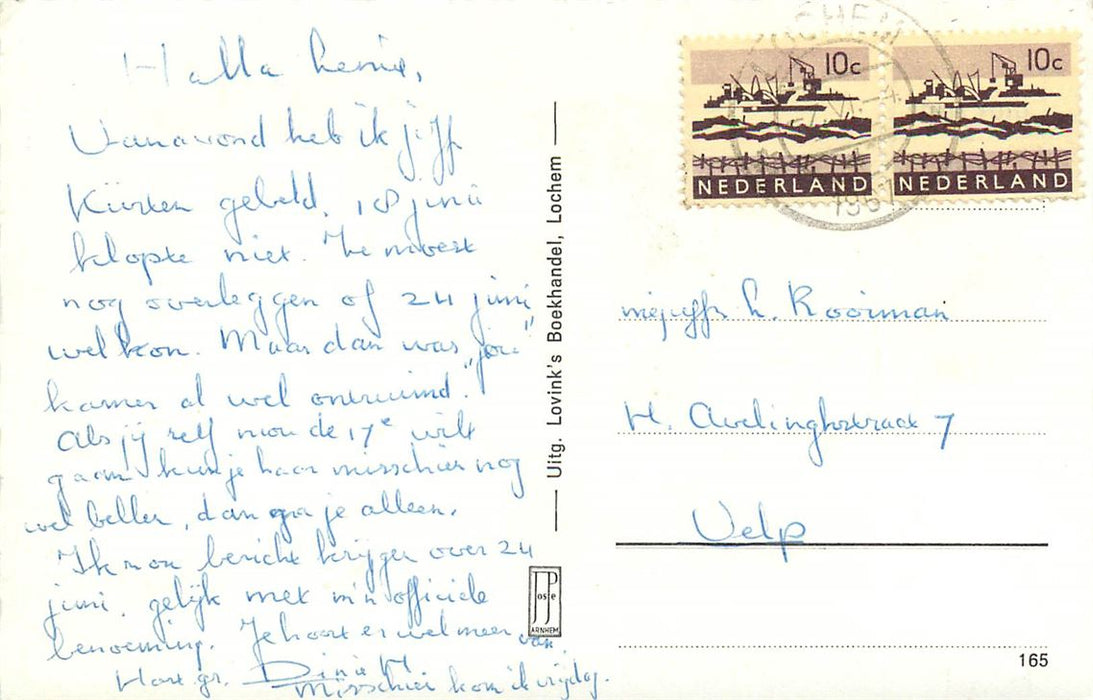 Hallo Henie,
Vanavond heb ik jff
Kürsten gebeld. 18 juni
klopte niet. Ze moest
nog overleggen of 24 juni
wel kon. Maar dan was „jou"
kamer al wel ontruimd.
Als jij zelf nou de 17e wilt
gaan kun je haar misschien nog
wel bellen, dan ga je alleen.
Ik zou bericht krijgen over 24
juni, gelijk met m'n officiële
benoeming. Je hoort er wel meer van.
Hart. gr. Dinie H.
Misschien kom ik vrijdag.
Uitg. Lovink's Boekhandel, Lochem
JosPe
ARNHEM
LOCHEM
1967
10c
NEDERLAND
10c
NEDERLAND
mejuffr h. Rooiman
H. Avelinghstraat 7
Velp
165